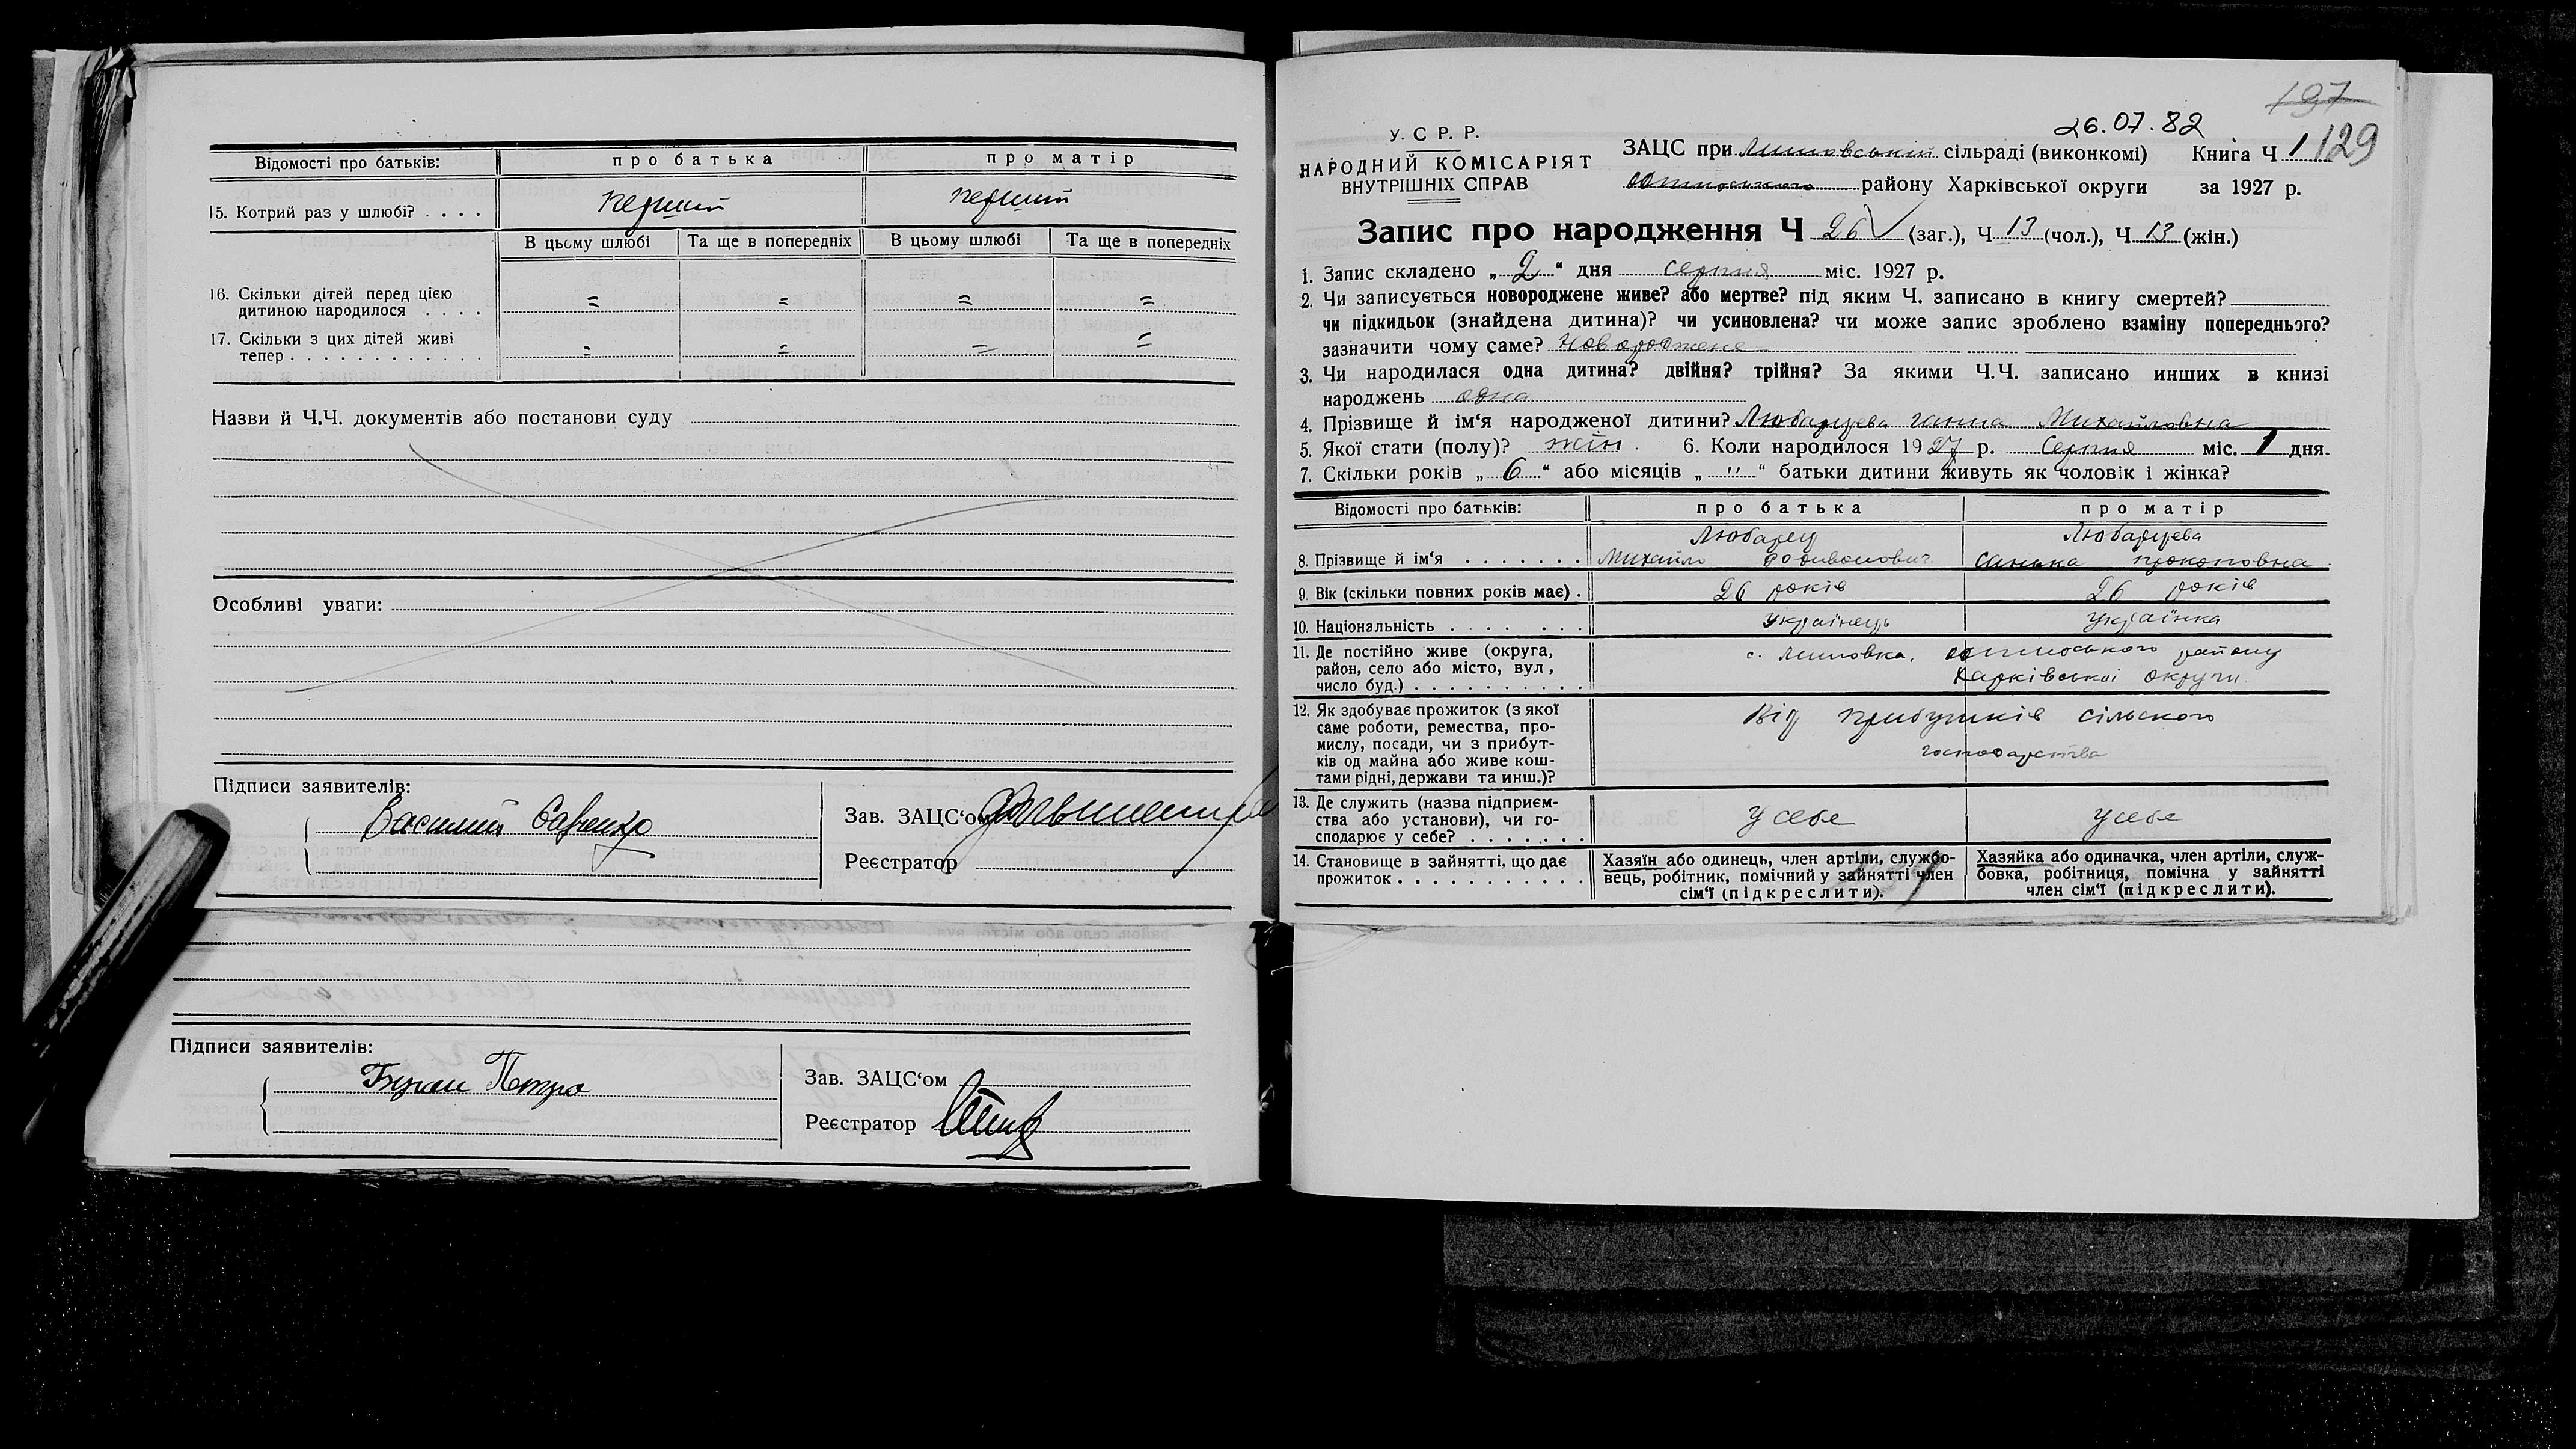 Відомості про батьків: про батька про матір
15. Котрий раз у шлюбі? . . . . перший перший
В цьому шлюбі Та ще в попередніх В цьому шлюбі Та ще в попередніх
16. Скільки дітей перед цією
дитиною народилося . . . . = = = =
17. Скільки з цих дітей живі
тепер . . . . . . . . . . . . . = = = =
Назви й Ч.Ч. документів або постанови суду
Особливі уваги:
Підписи заявителів:
Василий
Зав. ЗАЦС‘ом
Реєстратор
Підписи заявителів:
Петро
Зав. ЗАЦС‘ом
Реєстратор
197
26.07.82
129
У. С Р. Р.
НАРОДНИЙ КОМІСАРІЯТ
ВНУТРІШНІХ СПРАВ
ЗАЦС при сільраді (виконкомі) Книга Ч 1
району Харківської округи за 1927 р.
Запис про народження Ч 26 (заг.), Ч 13 (чол.), Ч 13 (жін.)
1. Запис складено „ 2 “ дня серпня міс. 1927 р.
2. Чи записується новороджене живе? або мертве? під яким Ч. записано в книгу смертей?
чи підкидьок (знайдена дитина)? чи усиновлена? чи може запис зроблено взаміну попереднього?
зазначити чому саме? Новороджене
3. Чи народилася одна дитина? двійня? трійня? За якими Ч.Ч. записано инших в книзі
народжень одна
4. Прізвище й ім‘я народженої дитини? Любарцева Ганна Михайловна
5. Якої стати (полу)? жін. 6. Коли народилося 1927 р. Серпня міс. 1 дня.
7. Скільки років „ 6 “ або місяців „ " “ батьки дитини живуть як чоловік і жінка?
Відомості про батьків: про батька про матір
Любарец Любарцева
8. Прізвище й ім‘я . . . . . . . Михайло Родивонович Санька Прокоповна
9. Вік (скільки повних років має) . 26 років 26 років
10. Національність . . . . . . . Українець Українка
11. Де постійно живе (округа,
район, село або місто, вул,
число буд.) . . . . . . . . . .
с. району
Харківської округи
12. Як здобуває прожиток (з якої
саме роботи, ремества, про-
мислу, посади, чи з прибут-
ків од майна або живе кош-
тами рідні, держави та инш.)?
Від прибутків сільского
господарства
13. Де служить (назва підприєм-
ства або установи), чи го-
сподарює у себе? . . . . . . .
У себе У себе
14. Становище в зайнятті, що дає
прожиток . . . . . . . . . . .
Хазяїн або одинець, член артіли, службо-
вець, робітник, помічний у зайнятті член
сім‘ї (підкреслити).
Хазяйка або одиначка, член артіли, служ-
бовка, робітниця, помічна у зайнятті
член сім‘ї (підкреслити).